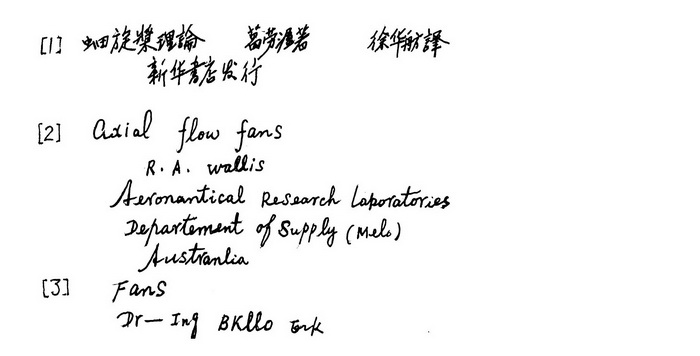 [1] 螺旋槳理論 葛劳渥著 徐华舫譯
新华書店发行
[2] Axial flow fans
R. A. wallis
Aeronantical Research Laporatories
Departement of Supply (Melo)
Austranlia
[3] Fans
Dr-Ing